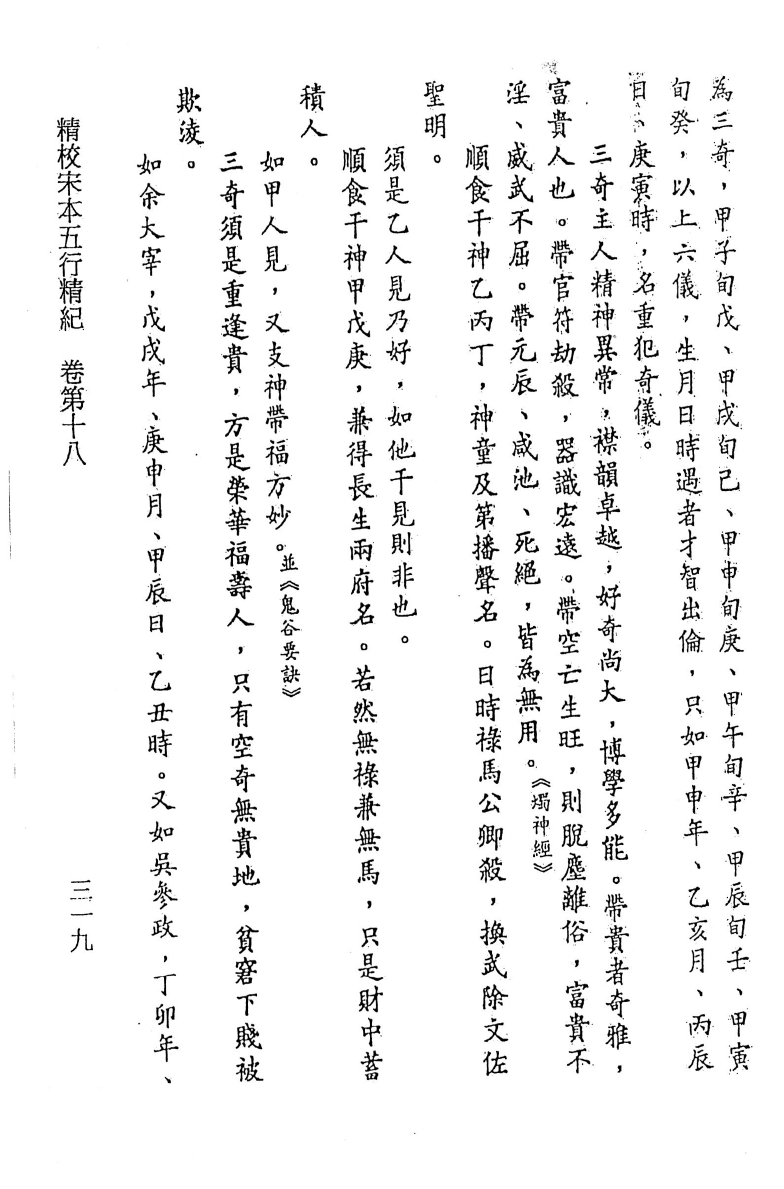 為三奇，甲子旬戊、甲戌旬己、甲申旬庚、甲午旬辛、甲辰旬壬、甲寅
旬癸，以上六儀，生月日時遇者才智出倫，只如甲申年、乙亥月、丙辰
日、庚寅時，名重犯奇儀。
三奇主人精神異常，襟韻卓越，好奇尚大，博學多能。帶貴者奇雅，
富貴人也。帶官符劫殺，器識宏遠。帶空亡生旺，則脫塵離俗，富貴不
淫、威武不屈。帶元辰、咸池、死絕，皆為無用。《燭神經》
順食干神乙丙丁，神童及第播聲名。日時祿馬公卿殺，換武除文佐
聖明。
須是乙人見乃好，如他干見則非也。
順食干神甲戊庚，兼得長生兩府名。若然無祿兼無馬，只是財中蓄
積人。
如甲人見，又支神帶福方妙。並《鬼谷要訣》
三奇須是重逢貴，方是榮華福壽人，只有空奇無貴地，貧窘下賤被
欺淩。
如余大宰，戊戌年、庚申月、甲辰日、乙丑時。又如吳參政，丁卯年、
精校宋本五行精紀　卷第十八
三一九